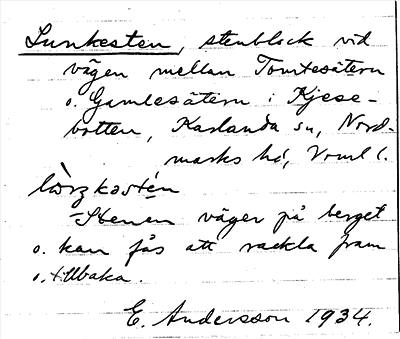 Lunkesten, stenblock vid
vägen mellan Tomtesätern
o. Gamlesätern i Kjese-
botten, Karlanda sn, Nord-
marks hd, Vrml l.
Stenen väger på berget
o. kan fås att vackla fram
o. tillbaka.
E. Andersson 1934.